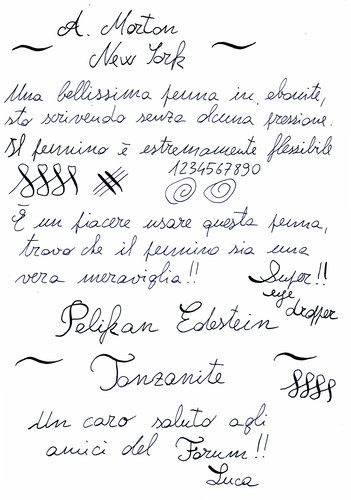 A. Morton
New York
Una bellissima penna in ebanite,
sto scrivendo senza alcuna pressione.
Il pennino è estremamente flessibile
1234567890
È un piacere usare questa penna,
trovo che il pennino sia una
vera meraviglia!!
Super!!
eye
dropper
Pelikan Edelstein
Tanzanite
Un caro saluto agli
amici del Forum!!
Luca